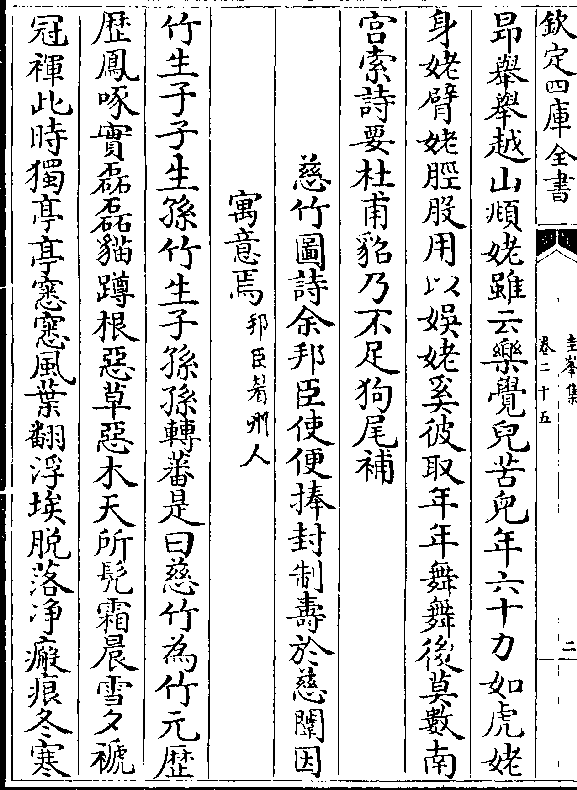 欽定四庫全書
圭峯集
卷二十五
二
昂舉舉越山頫姥雖云樂覺兒苦兒年六十力如虎姥
身姥臂姥脛股用以娛姥奚彼取年年舞舞後莫數南
宫索詩要杜甫貂乃不足狗尾補
慈竹圖詩余邦臣使便捧封制壽於慈闈因
寓意焉邦臣箬州人
竹生子子生孫竹生子孫孫轉蕃是曰慈竹為竹元歴
歴鳳啄實磊磊貓蹲根惡草惡木天所髡霜晨雪夕褫
冠褌此時獨亭亭窓窓風葉翻浮埃脱落净瘢痕冬寒